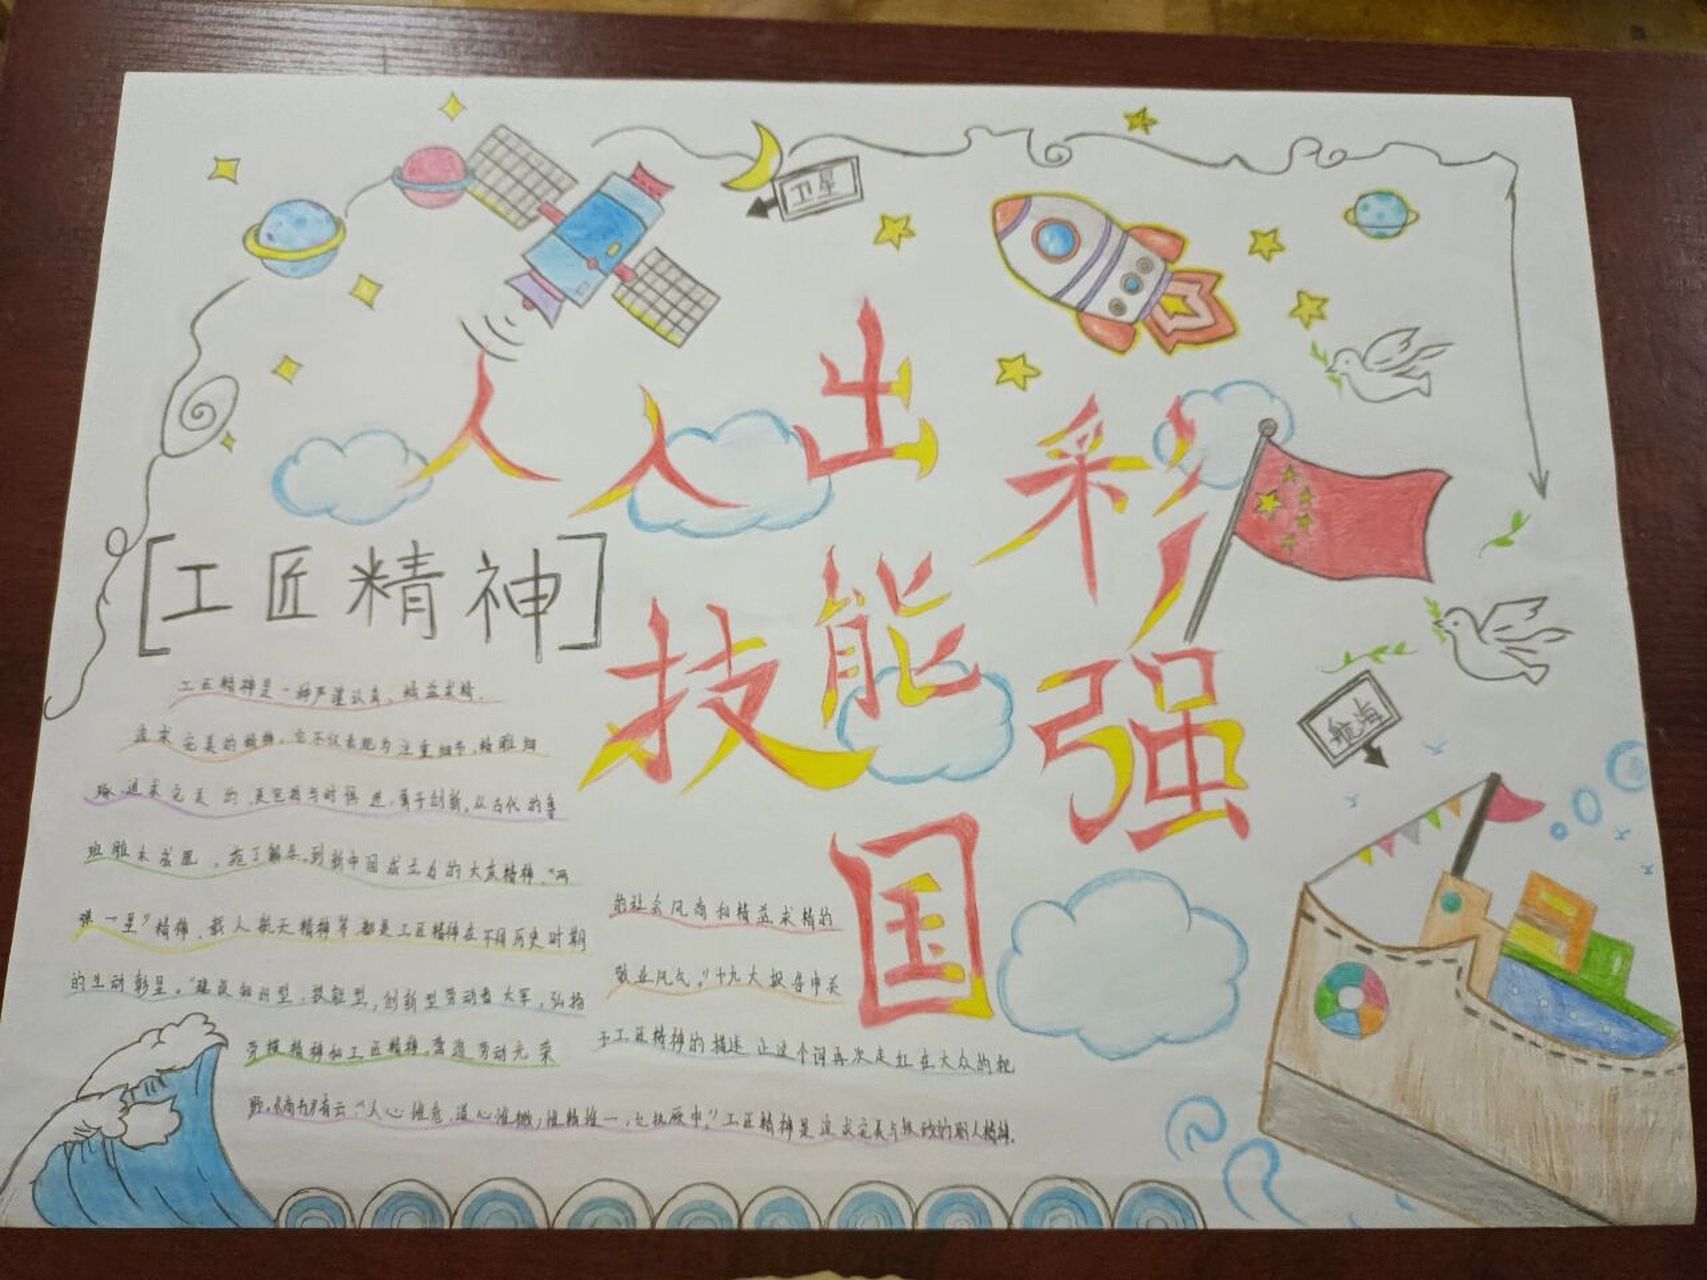 卫星
人人出彩
技能强国
[工匠精神]
航海
工匠精神是一种严谨认真、精益求精、
追求完美的精神，它不仅表现为注重细节，精雕细
琢，追求完美的，更包括与时俱进，勇于创新。从古代的鲁
班雕木成凰，庖丁解牛，到新中国成立后的大庆精神，“两
弹一星”精神、载人航天精神等，都是工匠精神在不同历史时期
的生动彰显。“建设知识型，技能型，创新型劳动者大军，弘扬
劳模精神和工匠精神，营造劳动光荣
的社会风尚和精益求精的
敬业风气。”十九大报告中关
于工匠精神的描述让这个词再次走红在大众的视
野。《尚书》有云：“人心惟危，道心惟微；惟精惟一，允执厥中。”工匠精神是追求完美与极致的匠人精神.